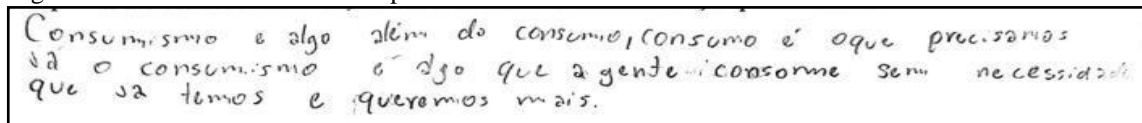 Consumismo e algo além do consumo, consumo é oque precisamos
já o consumismo é algo que a gente consome sem necessidade
que já temos e queremos mais.